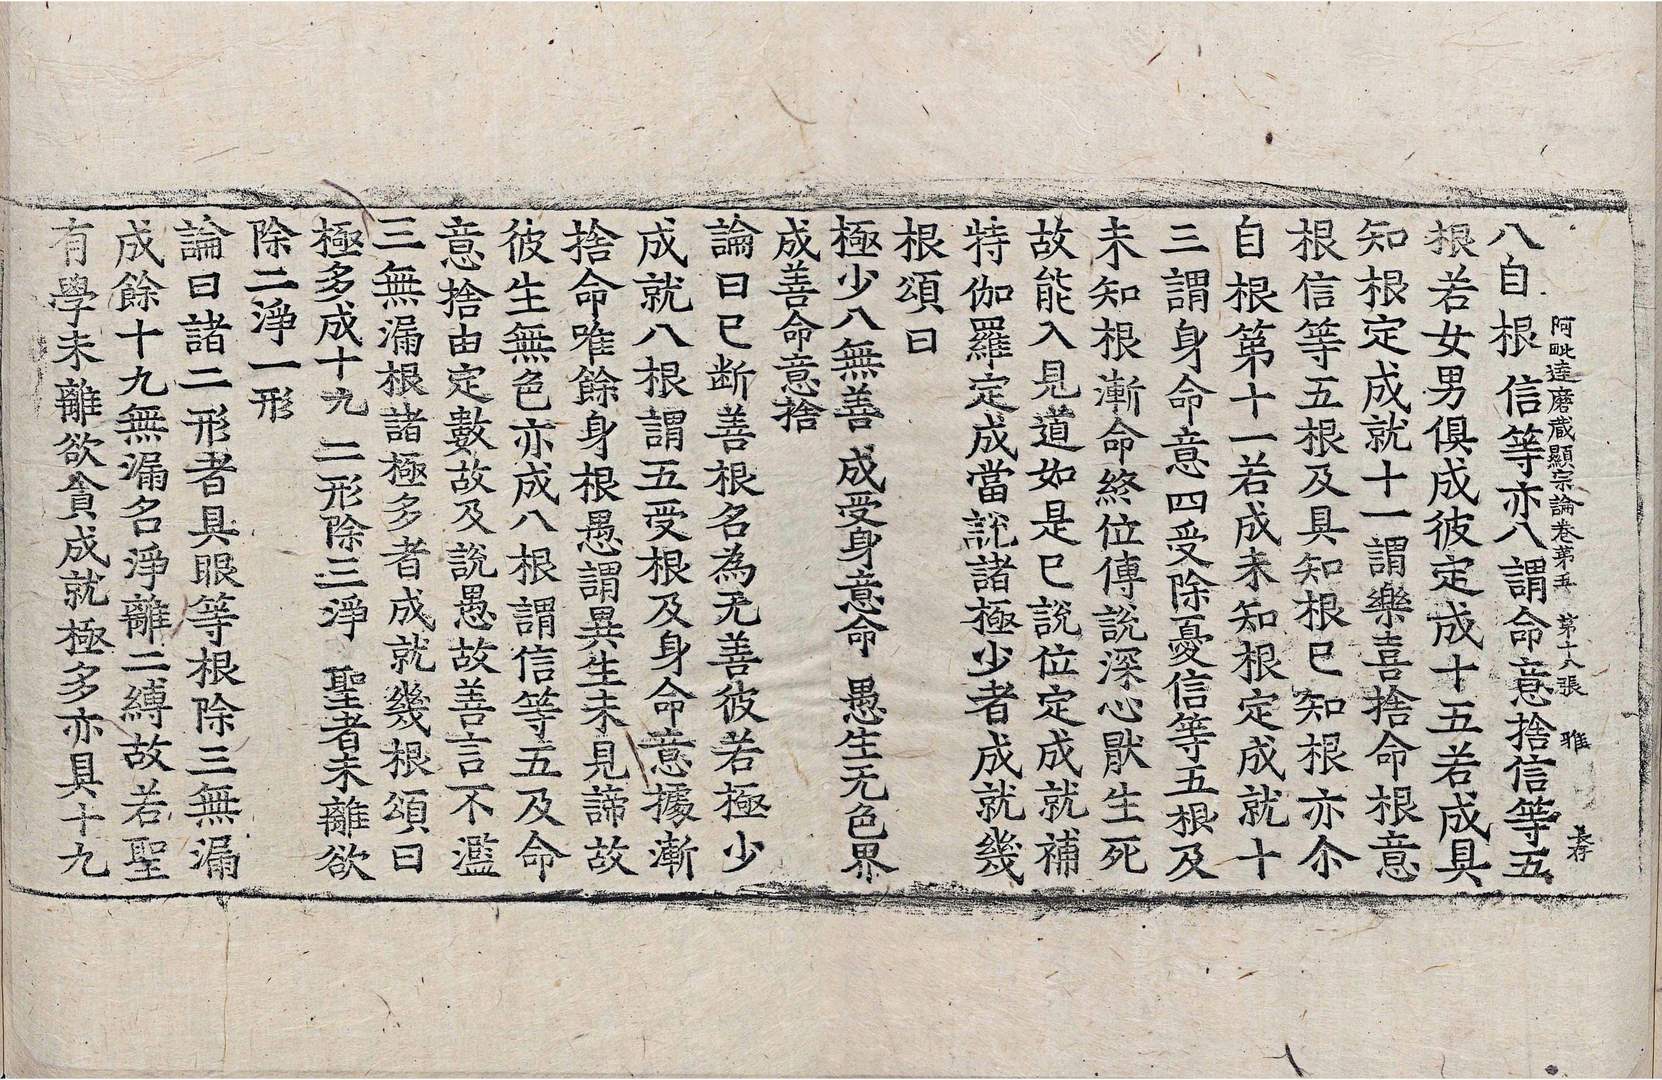 阿毗達磨藏顯宗論卷第五 第十八張 雅
八自根信等亦八謂命意捨信等五
根若女男俱成彼定成十五若成具
知根定成就十一謂樂喜捨命根意
根信等五根及具知根巳知根亦尒
自根第十一若成未知根定成就十
三謂身命意四受除憂信等五根及
未知根漸命終位傳說深心猒生死
故能入見道如是巳說位定成就補
特伽羅定成當說諸極少者成就幾
根頌曰
極少八無善 成受身意命 愚生无色界
成善命意捨
論曰巳断善根名為无善彼若極少
成就八根謂五受根及身命意據漸
捨命唯餘身根愚謂異生未見諦故
彼生無色亦成八根謂信等五及命
意捨由定數故及說愚故善言不濫
三無漏根諸極多者成就幾根頌曰
極多成十九 二形除三淨 聖者未離欲
除二淨一形
論曰諸二形者具眼等根除三無漏
成餘十九無漏名淨離二縛故若聖
有學未離欲貪成就極多亦具十九